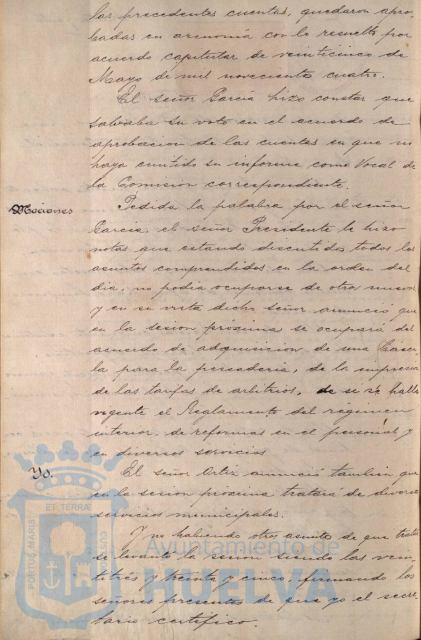 las precedentes cuentas, quedaron apro-
badas en armonía con lo resuelto por
acuerdo capitular de veinticinco de
Mayo de mil novecientos cuatro.
El señor García hizo constar que
salvaba su voto en el acuerdo de
aprobación de las cuentas en que no
haya emitido su informe como Vocal de
la Comisión correspondiente.
Mociones
Pedida la palabra por el señor
García, el señor Presidente le hizo
notar que estando discutidos todos los
asuntos comprendidos en la orden del
día, no podía ocuparse de otros nuevos
y en su vista dicho señor anunció que
en la sesión próxima se ocupará del
acuerdo de adquisición de una Case-
la para la pescadería, de la
de las tarifas de arbitrios, de si se halla
vigente el Reglamento del régimen
interior, de reformas en el personal y
en diversos servicios.
Yd.
El señor Ortiz anunció también que
en la sesión próxima tratará de diversos
servicios municipales.
Y no habiendo otros asuntos de que tratar
se levantó la sesión siendo las vein-
titrés y treinta y cinco, firmando los
señores presentes de que yo el secre-
tario certifico.
PORTUS MARIS ET TERRAE CUSTODIA
Ayuntamiento de
HUELVA